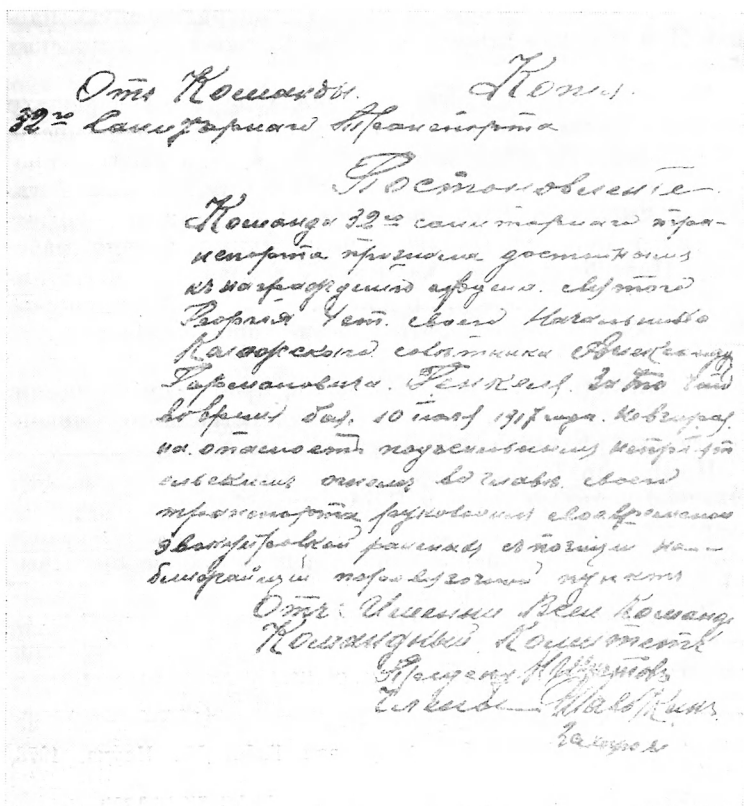 Отъ Команды. Копія.
32го Санитарнаго Транспорта
Постоновленіе
Команда 32го санитарнаго тран-
испорта признала достинымъ
къ награжденію ордена. святого
Георгія 4 ст. своего Начальника
Колежского совѣтника Александра
Германовича. Генкеля. За то
во время боя. 10 іюля 1917 года.
на опасность подъ сильнымъ непріят
ельскимъ огнемъ во главѣ. своего
транспорта руководилъ своевременно
эвакуировкой раненыхъ съ позиціи на
ближайшій перевязочный пунктъ
Отъ: Имении Всей Команды
Командный Комитетъ
Члены